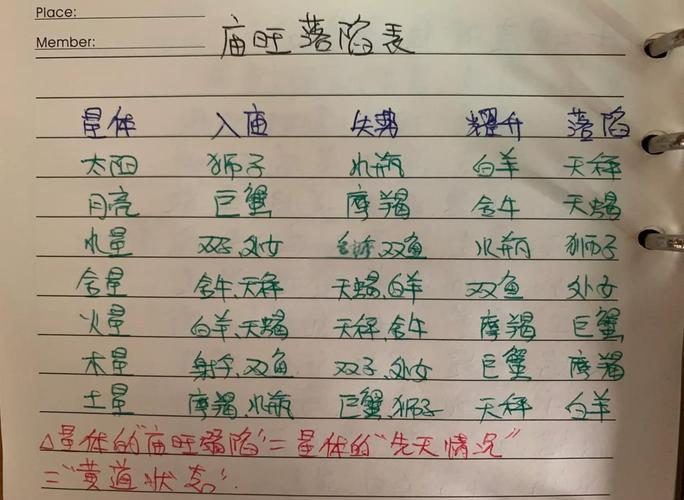 Place:
Member:
庙旺落陷表
星体 入庙 失势 耀升 落陷
太阳 狮子 水瓶 白羊 天秤
月亮 巨蟹 摩羯 金牛 天蝎
水星 双子、处女 双鱼 水瓶 狮子
金星 金牛、天秤 天蝎、白羊 双鱼 处女
火星 白羊、天蝎 天秤、金牛 摩羯 巨蟹
木星 射手、双鱼 双子、处女 巨蟹 摩羯
土星 摩羯、水瓶 巨蟹、狮子 天秤 白羊
△星体的"庙旺陷"=星体的"先天情况"
="黄道状态".